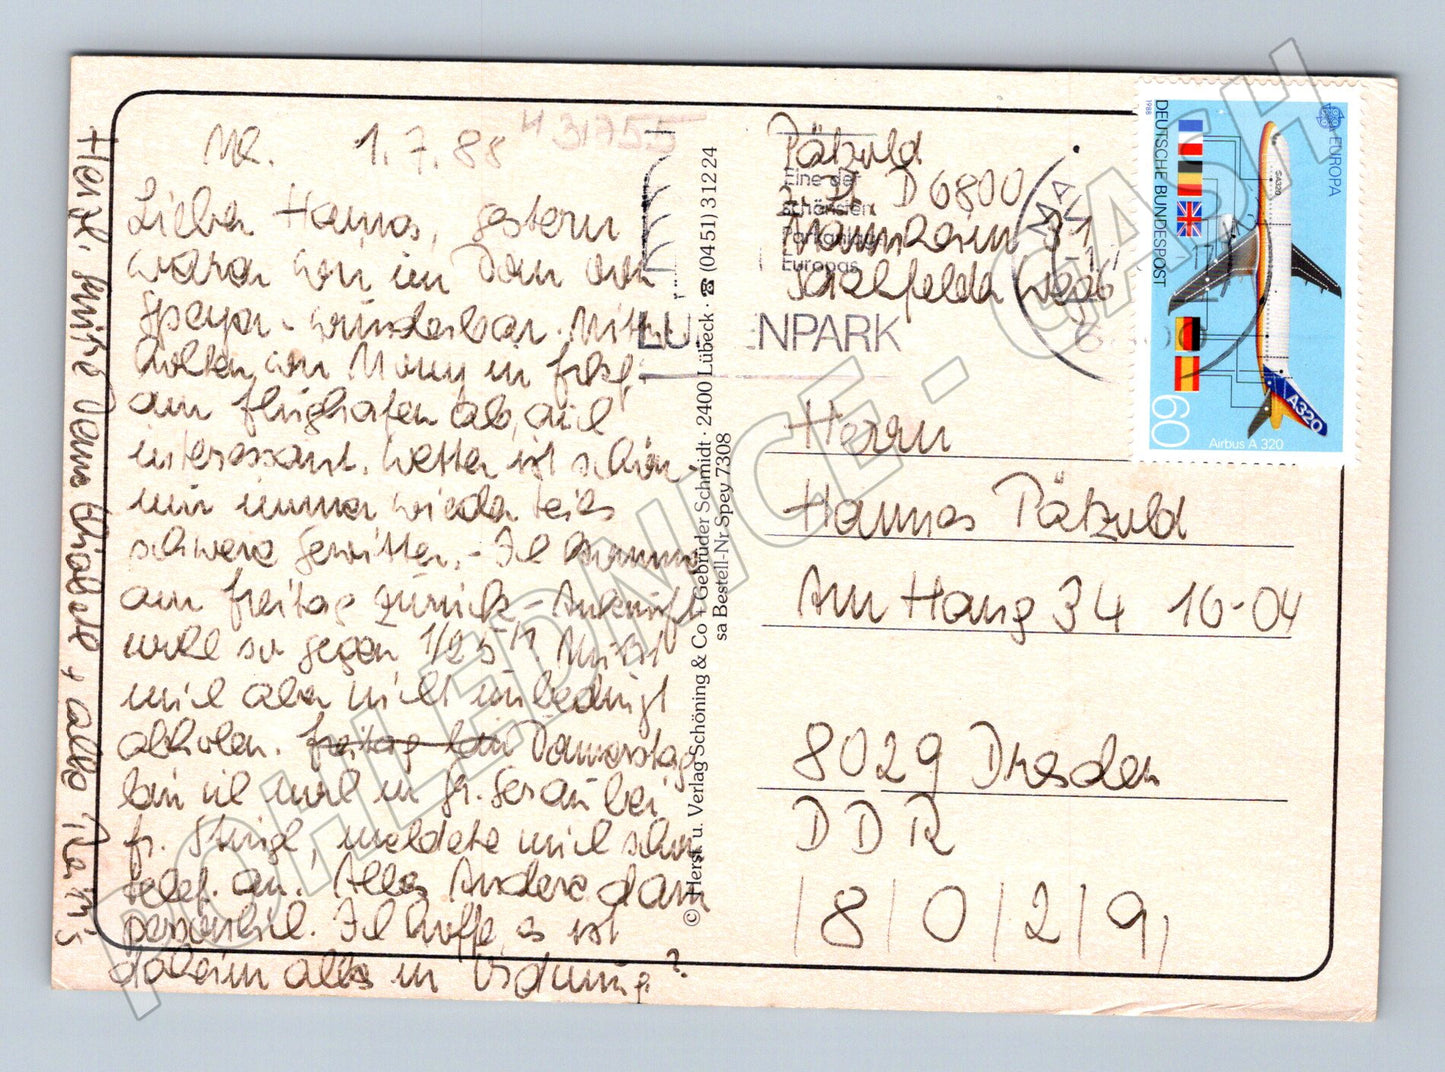 1.7.88
H 31755
Lieber Hannes, gestern
waren wir im Dom von
Speyer - wunderbar. Mitt.
holten wir Mony in
am Flughafen ab, auch
interessant. Wetter ist schön -
nur immer wieder teils
schwere Gewitter. - Ich komme
am Freitag zurück - Ankunft
wohl so gegen 1/2 5h
mich aber nicht unbedingt
abholen. Freitag bin Donnerstag
bin ich wohl in bei
fr. meldete mich schon
telef. an. Alles Andere dann
persönlich. Ich hoffe, es ist
daheim alles in Ordnung?
Herzl. Grüße Deine + alle
© Herst. u. Verlag Schöning & Co + Gebrüder Schmidt · 2400 Lübeck · ☎ (04 51) 3 12 24
sa Bestell-Nr. Spey 7308
Pätzold
D 6800
Mannheim 31
Eine der
schönsten
Parkanlagen
Europas
LUISENPARK
MANNHEIM
DEUTSCHE BUNDESPOST
1988
EUROPA
SA320
A320
60
Airbus A 320
Herrn
Hannes Pätzold
Am Hang 34 16-04
8029 Dresden
DDR
|8|0|2|9|
POHLEDNICE - CASH